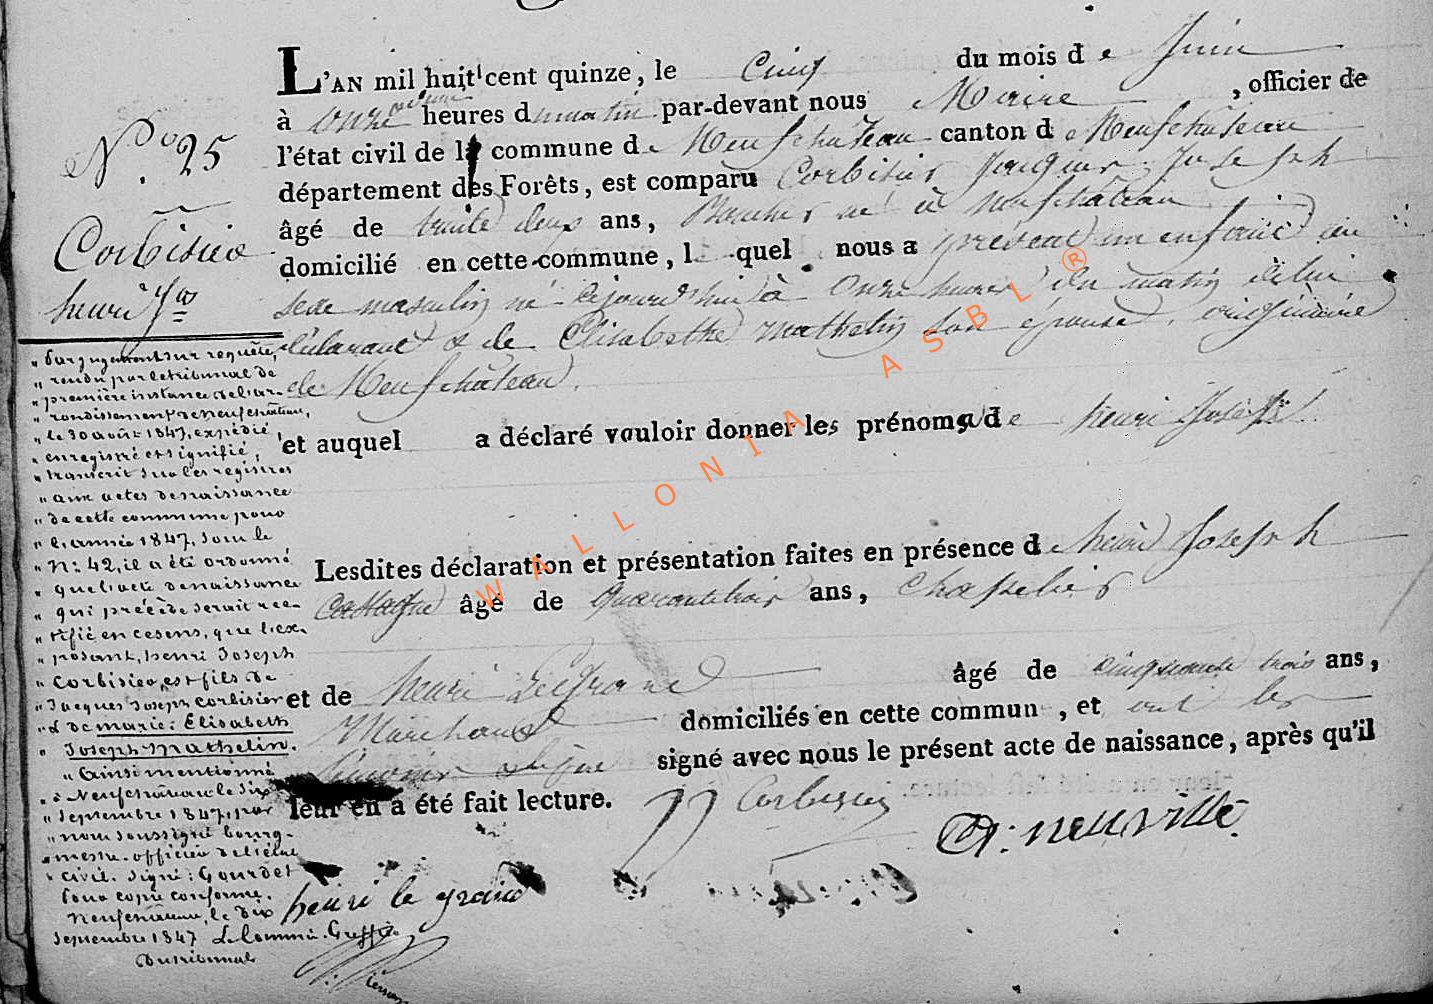 N.o 25
Corbisier
henri Jos
L'AN mil huit cent quinze, le Cinq du mois de Juin
à onze heures du matin par-devant nous Maire, officier de
l'état civil de la commune de Neufchateau canton de Neufchateau
département des Forêts, est comparu Corbisier Jacques Joseph
âgé de trente deux ans, né à Neufchateau
domicilié en cette commune, lequel nous a présenté un enfant du
sexe masculin né cejourd'hui à onze heures du matin de lui
déclarant & de Elisabethe Mathelin son épouse, originaire
de Neufchâteau.
et auquel a déclaré vouloir donner les prénoms de henri Joseph
Lesdites déclaration et présentation faites en présence de henri Joseph
âgé de quarante trois ans, chapelier
et de henri Legrand âgé de cinquante trois ans,
Marchand domiciliés en cette commun , et ont les
signé avec nous le présent acte de naissance, après qu'il
leur en a été fait lecture.
JJ Corbisier
A: neuville
henri le grand
" Par jugement sur requête,
" rendu par le tribunal de
" première instance de l'ar-
" rondissement de Neufchâteau,
" le 30 août 1847, expédié
" enregistré et signifié,
" transcrit sur les registres
" aux actes de naissance
" de cette commune pour
" l'année 1847, sous le
" N: 42, il a été ordonné
" que l'acte de naissance
" qui précède serait rec-
" tifié en ce sens, que l'ex-
" posant, henri Joseph
" Corbisier, est fils de
" Jacques Joseph Corbisier
" & de marie: Elisabeth
" Joseph Mathelin.
" Ainsi mentionné
" à Neufchâteau le six
" Septembre 1847, par
" nous soussigné bourg-
" mestre officier de l'état
" civil. Signé: Gourdet
Pour copie conforme.
Neufchâteau, le dix
Septembre 1847 Le Commis Greffier
Du tribunal
WALLONIA ASBL ®